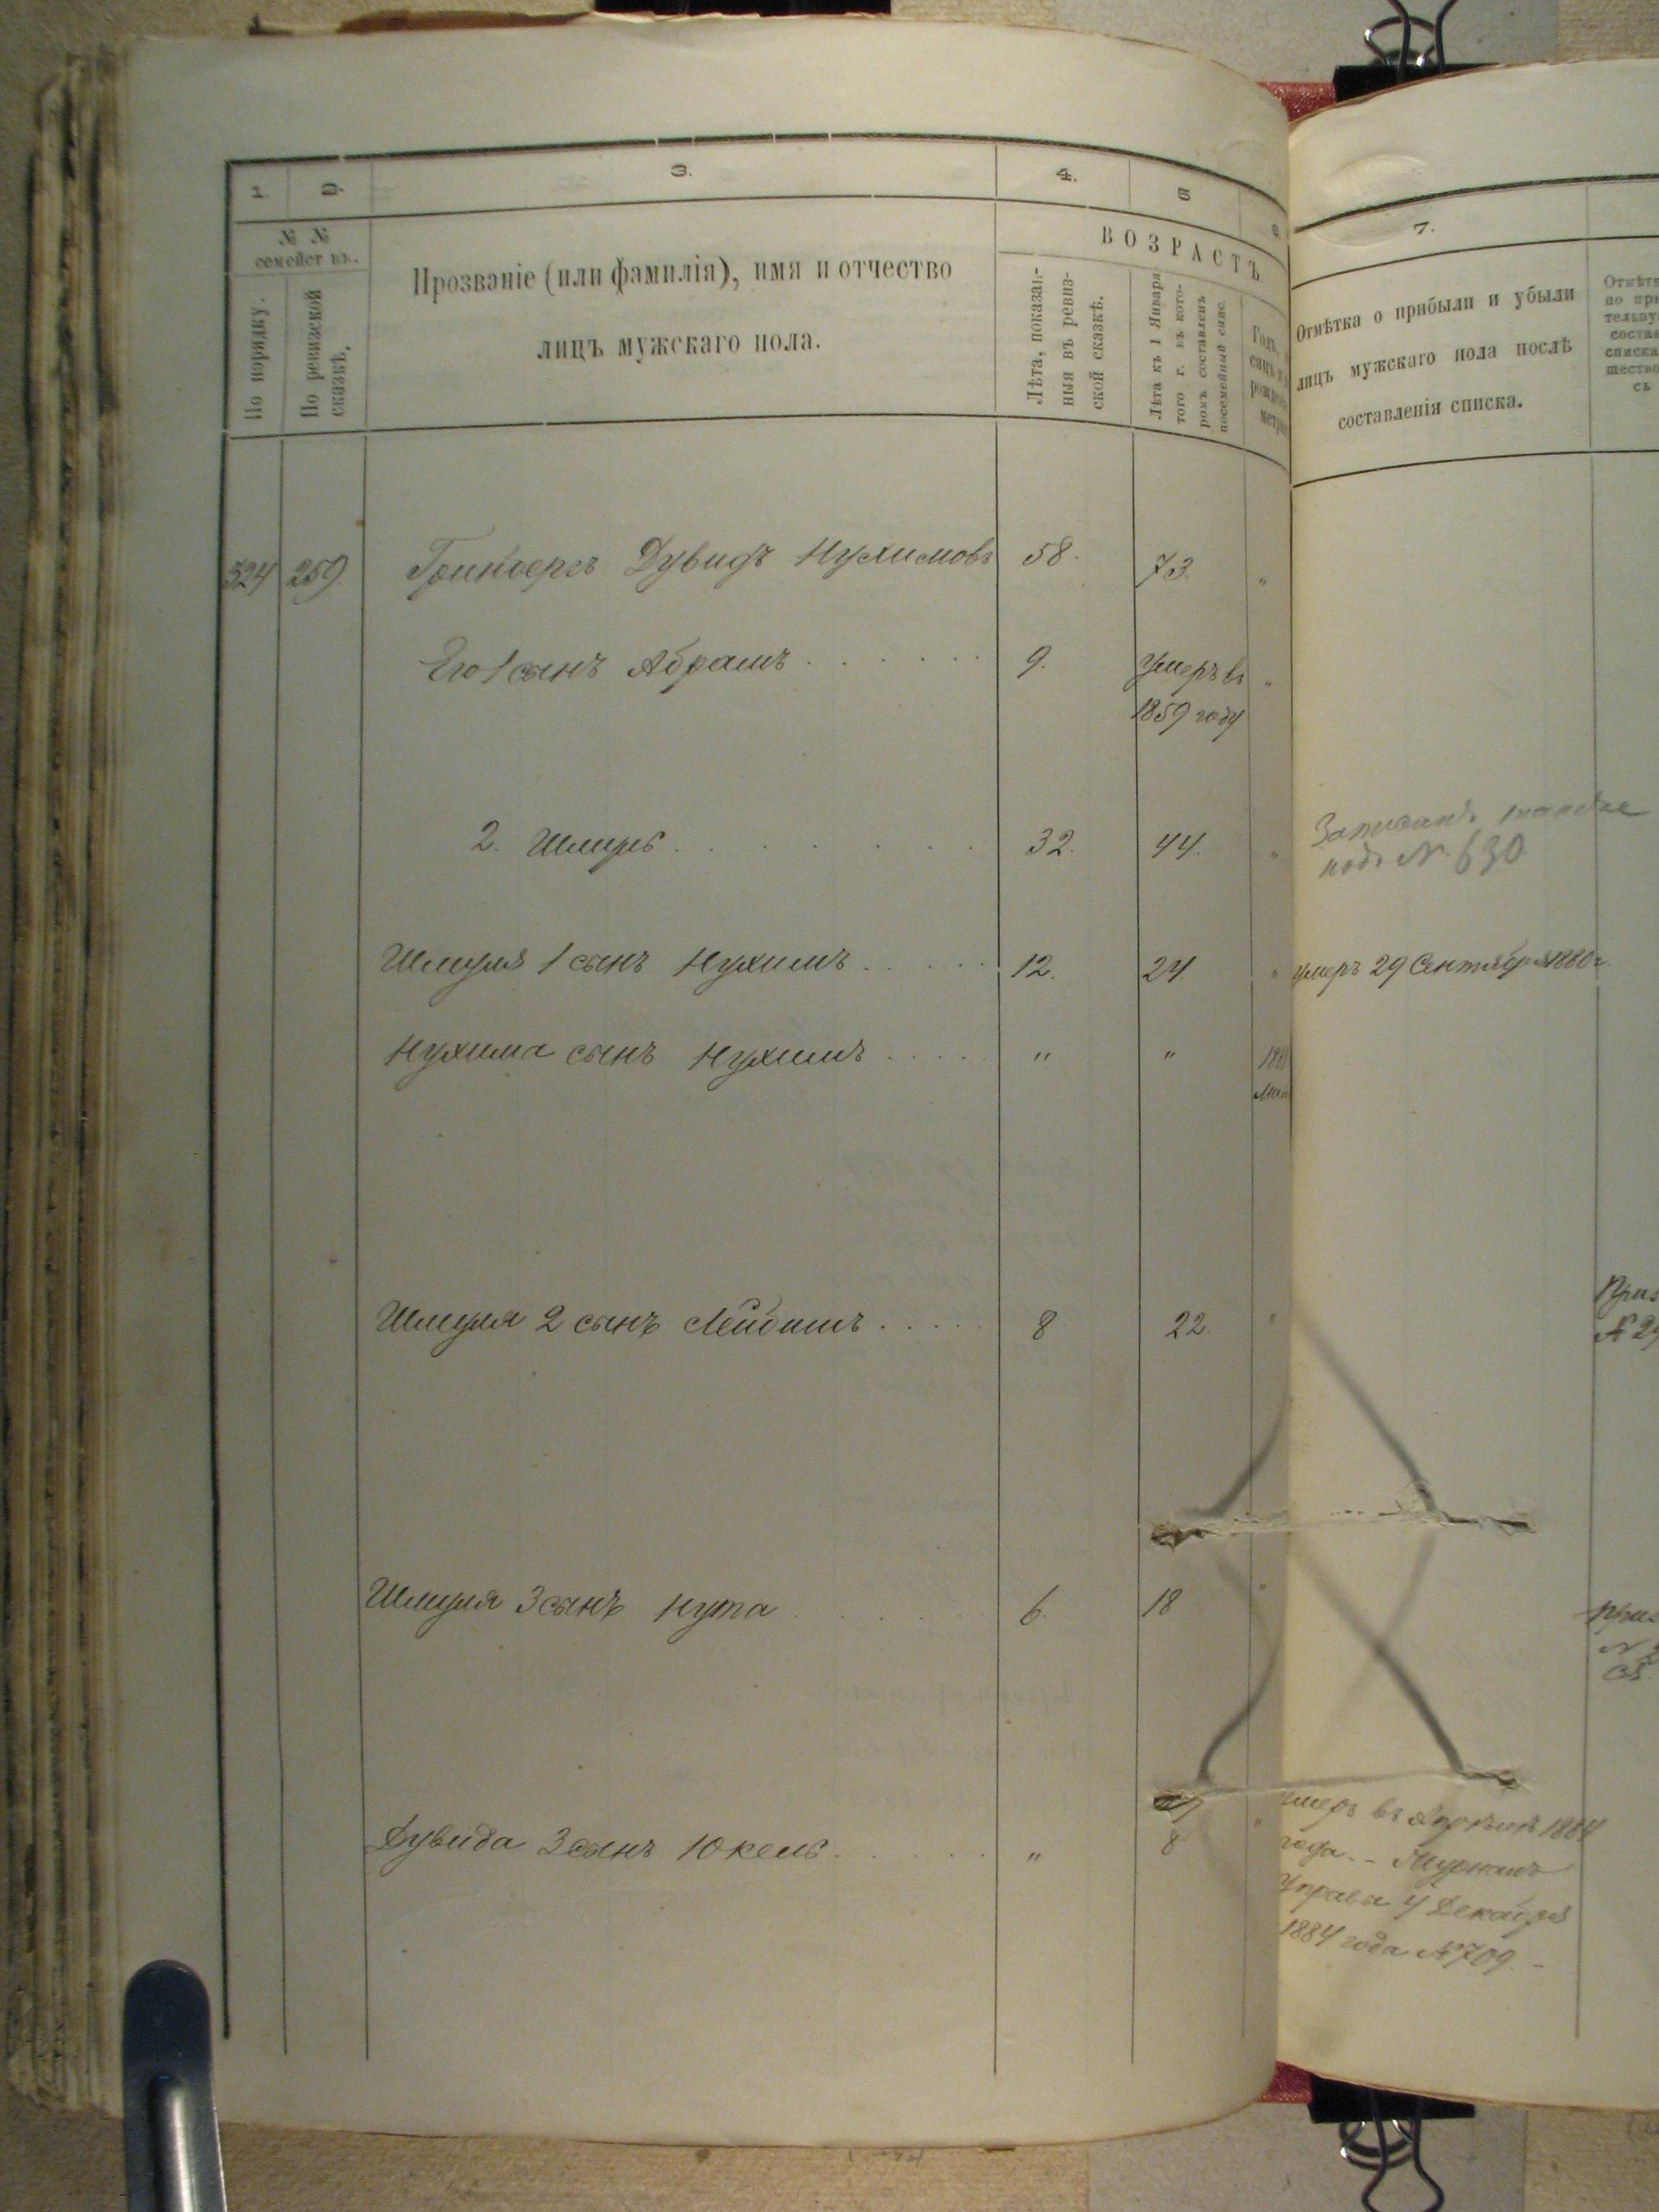 1
2.
3.
4.
5
6.
7.
№ №
семействъ.
По порядку.
По ревизской сказкѣ.
Прозваніе (или фамилія), имя и отчество
лицъ мужскаго пола.
ВОЗРАСТЪ
Лѣта, показан-
ныя въ ревиз-
ской сказкѣ.
Лѣта къ 1 Января
того г. въ кото-
ромъ составленъ
посемейный спис.
Отмѣтка о прибыли и убыли
лицъ мужскаго пола послѣ
составленія списка.
324 259. Гринбергъ Дувидъ Нухимовъ 58. 73. "
Его 1 сынъ Абрамъ 9. Умеръ въ "
1859 году
2. Шмуль 32. 44. " Записанъ также
подъ № 630
Шмуля 1 сынъ Нухимъ 12. 24. " умеръ 29 Сентября 1880 г.
Нухима сынъ Нухимъ " " 1881
Шмуля 2 сынъ Лейбишъ 8 22. "
№ 29
Шмуля 3 сынъ Нута 6. 18 "
Дувида 3 сынъ Юкель " 8 "
умеръ въ 1884
года. -
Управы 4 Декабря
1884 года № 709. -